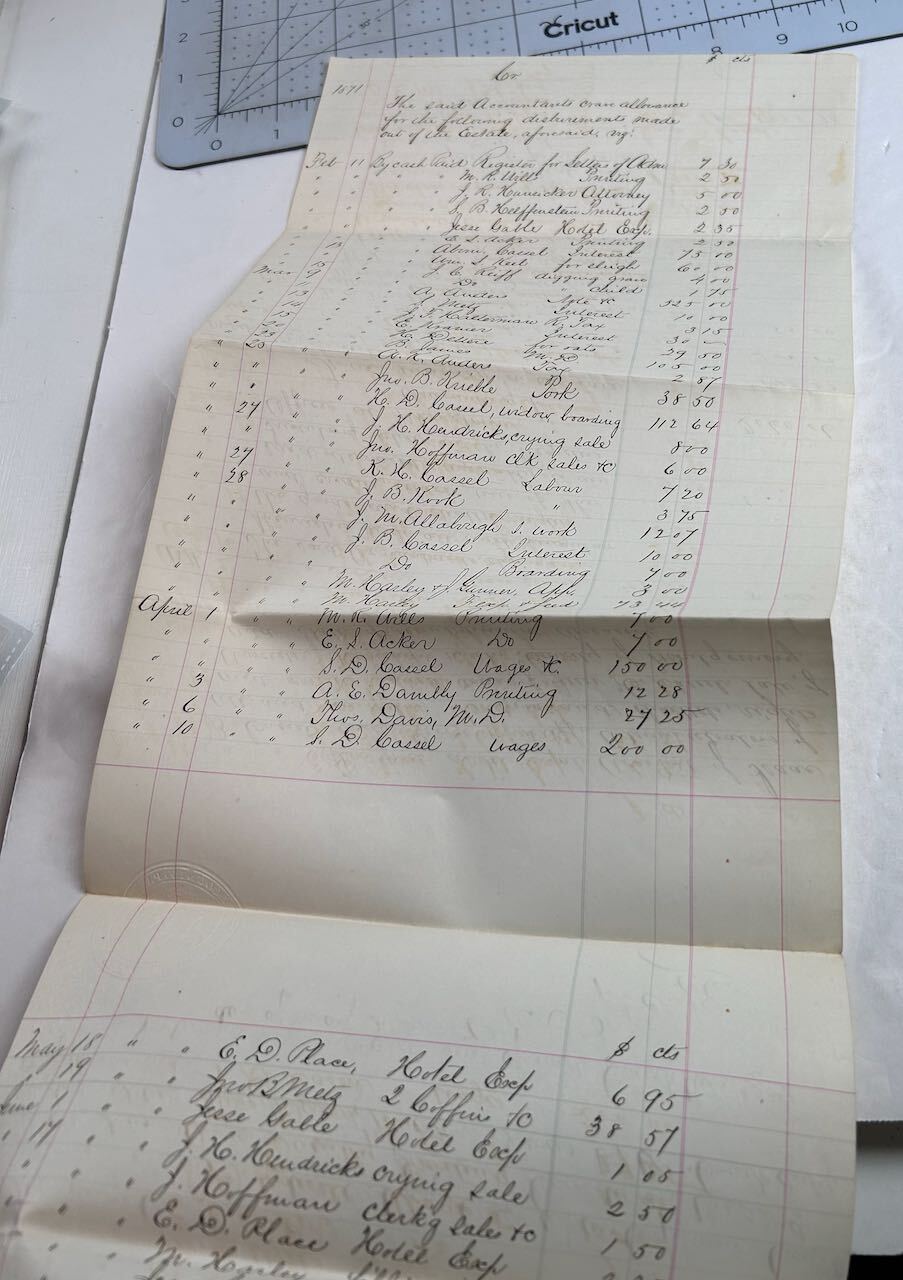 Cricut
2
8
9
10
1
0
0
1
2
$ cts
Cr
1871
The said Accountants crave allowance
for the following disbursements made
out of the Estate, aforesaid, viz:
Feb 11 By cash Paid Register for Letters of Adm 7 30
" " " " M. R. Wills Printing 2 50
" " " " J. R. Hunsicker Attorney 5 00
" " " " B. Hoeffenstein Printing 2 50
" " " " Jesse Gable Hotel Exp. 2 35
" " " E. S. Acker Printing 2 50
" " " Abm. Cassel Interest 75 00
" " " Wm. S. for sleigh 60 00
Mar 9 " " J. C. Keiff digging grave 4 00
" " " Do " child 1 75
" 13 " " A. Anders Note &c 325 00
" 14 " " Metz Interest 10 00
" 15 " " J. F. Halterman R. Tax 3 15
" " " E. Kramer Interest 30 –
" " " H. for oats 29 50
" " " B. James M. D 105 00
" " " " A. K. Anders Tax 2 87
" " " " Jno. B. Krieble Pork 38 50
" 24 " " H. D. Cassel, widow boarding 112 64
" " " " J. H. Hendricks, crying sale 8 00
" 27 " " Jno. Hoffman clk sales &c 6 00
" 28 " " K. H. Cassel Labour 7 20
" " " " J. B. Kook " 3 75
" " " " J. M. Allabough S. work 12 07
" " " " J. B. Cassel Interest 10 00
" " " " Do Boarding 4 00
" " " " M. Harley & J. App. 3 00
" " " M. Harley 73 44
April 1 " " M. R. Wills Printing 7 00
" " " " E. S. Acker Do 7 00
" " " " S. D. Cassel Wages &c. 150 00
" 3 " " A. E. Dambly Printing 12 28
" 6 " " Thos. Davis, M.D. 27 25
" 10 " " S. D. Cassel wages 200 00
$ cts
May 18 " " E. D. Place, Hotel Exp 6 95
" 19 " " Jno B Metz 2 Coffins &c 38 57
June 1 " " Jesse Gable Hotel Exp 1 05
" 17 " " J. H. Hendricks crying sale 2 50
" " " " J. Hoffman clerkg sales &c 1 50
" " " E. D. Place Hotel Exp
" " M. Harley